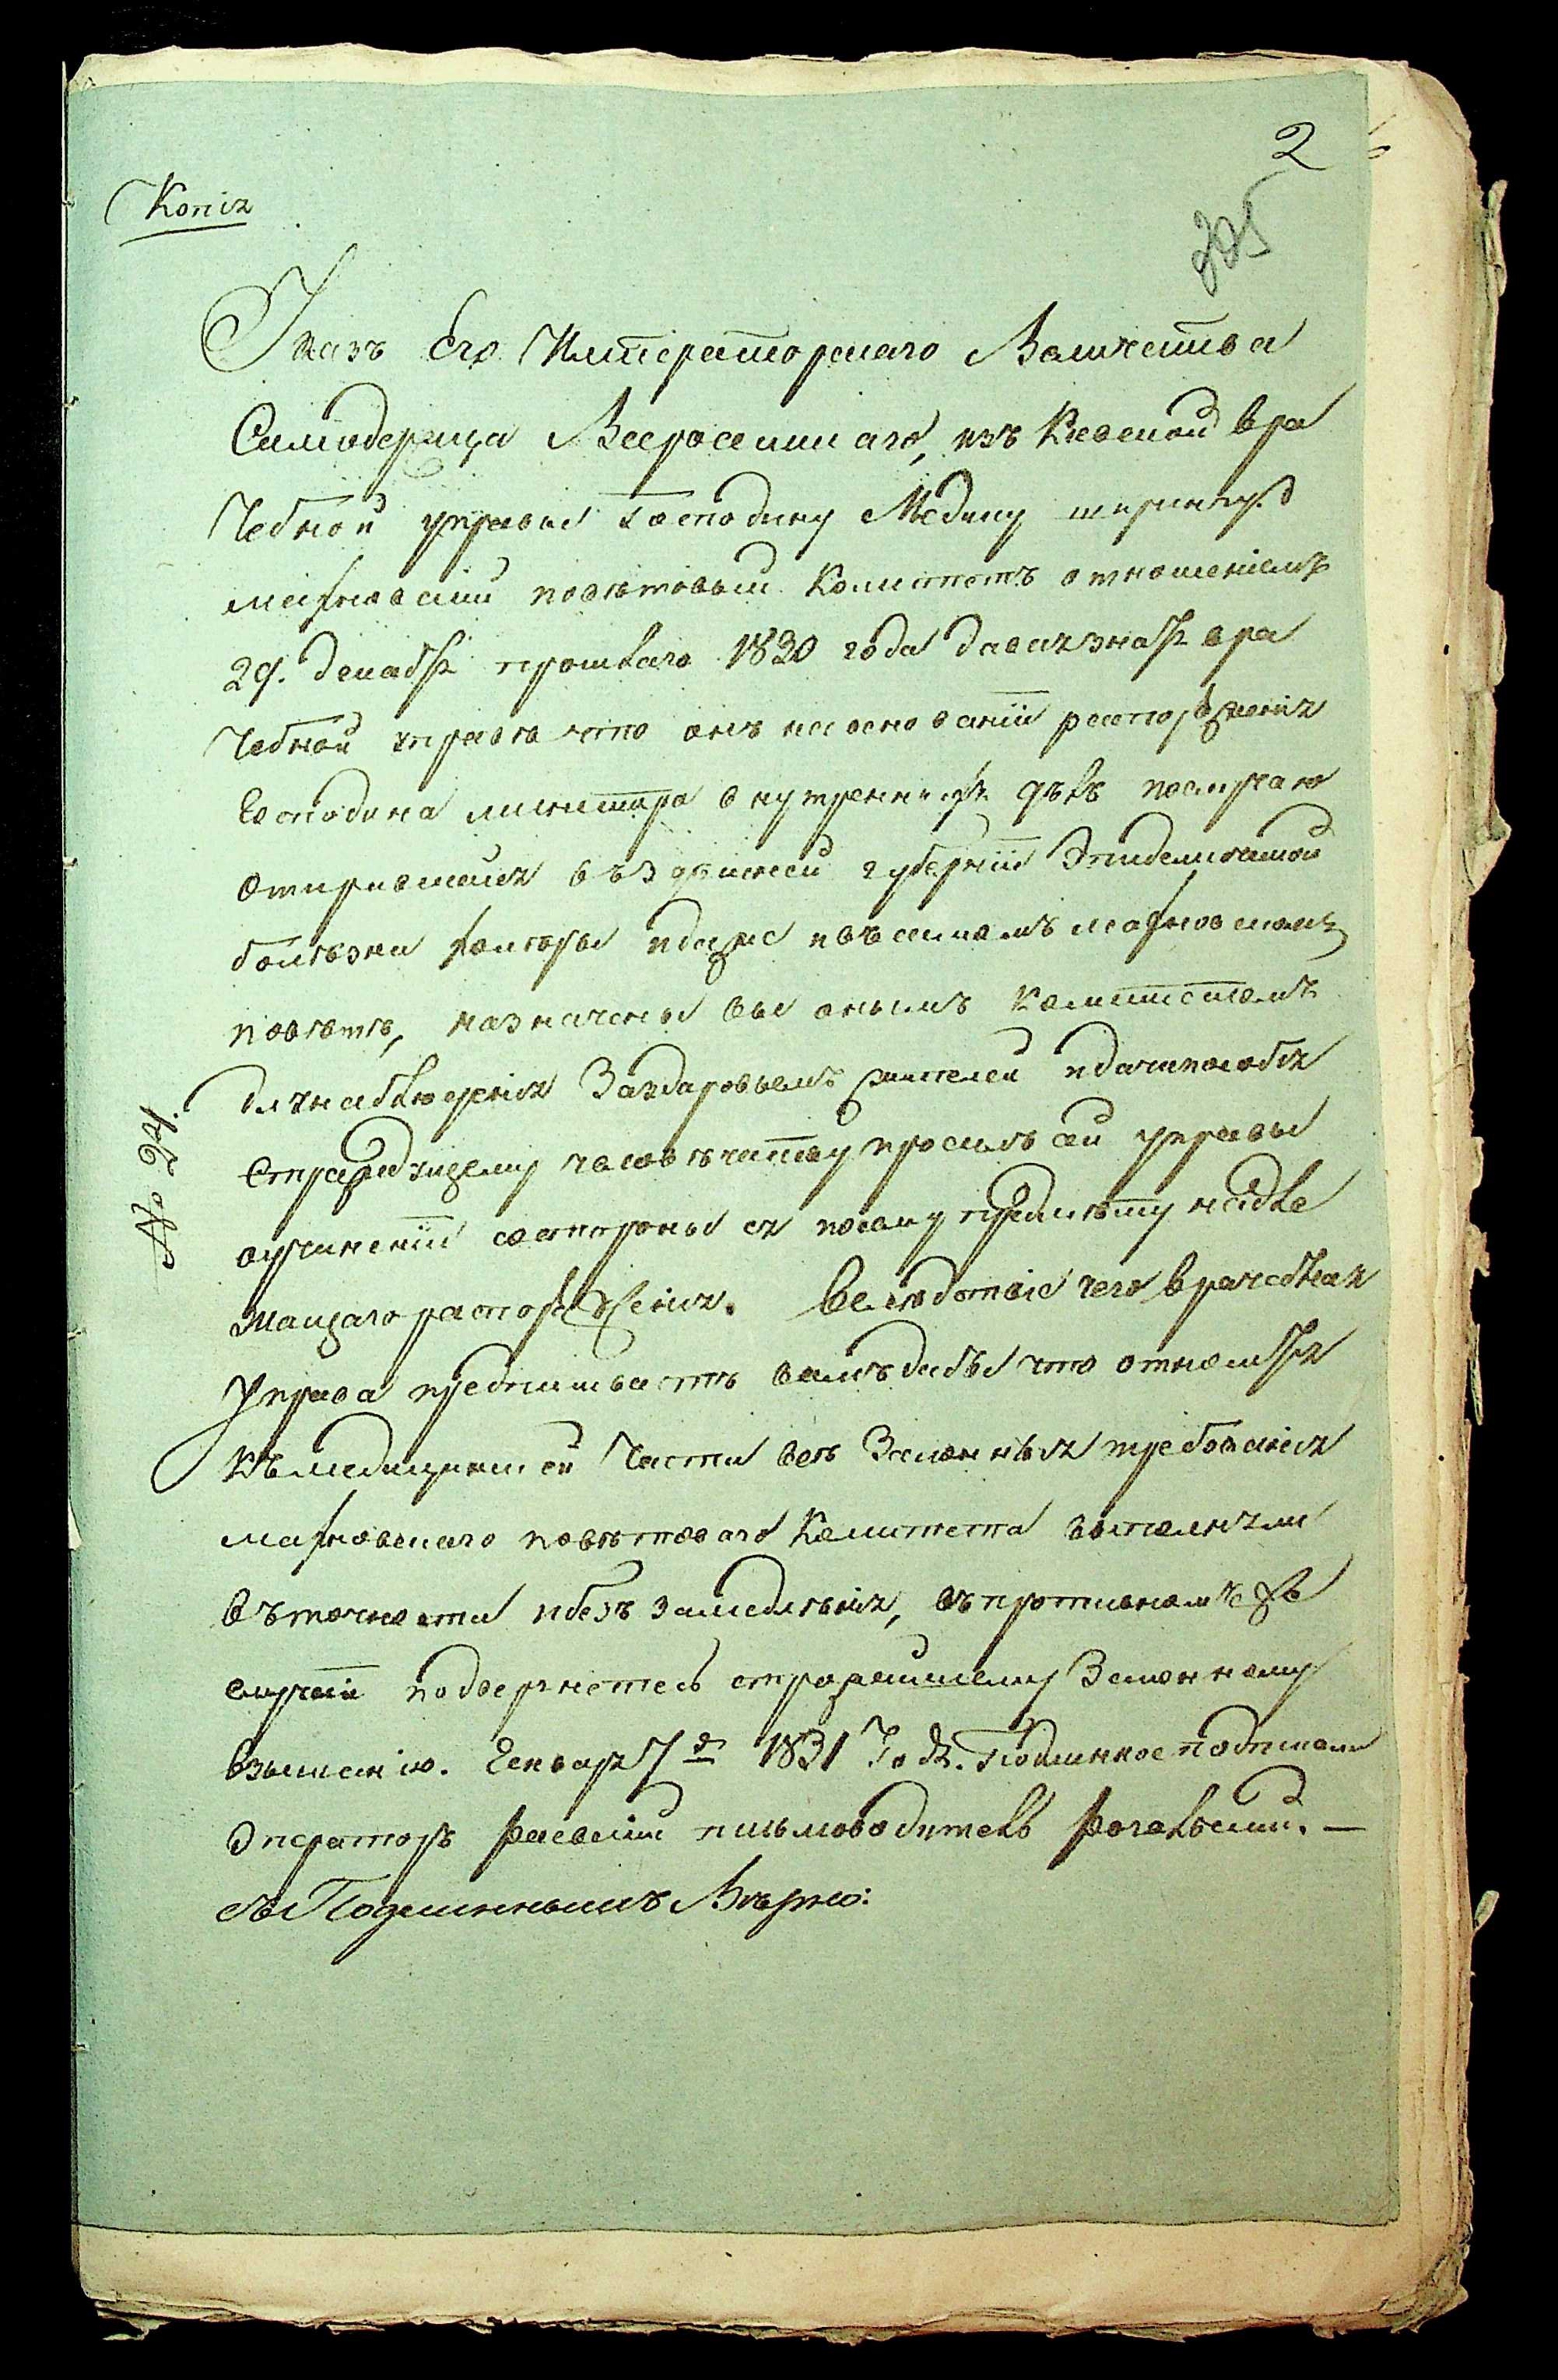 2
Копія
225
Указъ Его Императорскаго Величества
Самодержца Всеросийскаго, изъ Кіевской вра
чебной управы Господину Медику
махновский повѣтовый Комитетъ отношеніемъ
29. декабр прошлаго 1830 года давая знать вра
чебной управѣ что онъ на основаніи распоряженія
Господина министра внутреннихъ дѣлъ по случаю
открившейся въ здѣшней губерніи Эпидемической
болѣзни холеры и даже въ самомъ махновскомъ
повѣтѣ, назначены вы онымъ комитетомъ
для наблюденія За здаровьемъ жителей и дачи пособія
страждущему человѣчеству просилъ сей управы
о учиненіи состороны ея по сему предмѣту надле
жащаго распоряженія. Вслѣдствіе чего врачебная
управа предписываетъ вамъ дабы что относится
къ медицинской Части всѣ Законныя требованія
махновскаго повѣтоваго Комитета выполняли
въ точности и безъ замедленія, въ противномъ же
случаи подвергнетесь строжайшему Законному
взысканію. Генвар 7д 1831 Года. Подлинное подписали
Операторъ письмоводитель
№ 24.
съ Подлиннымъ Вѣрно: